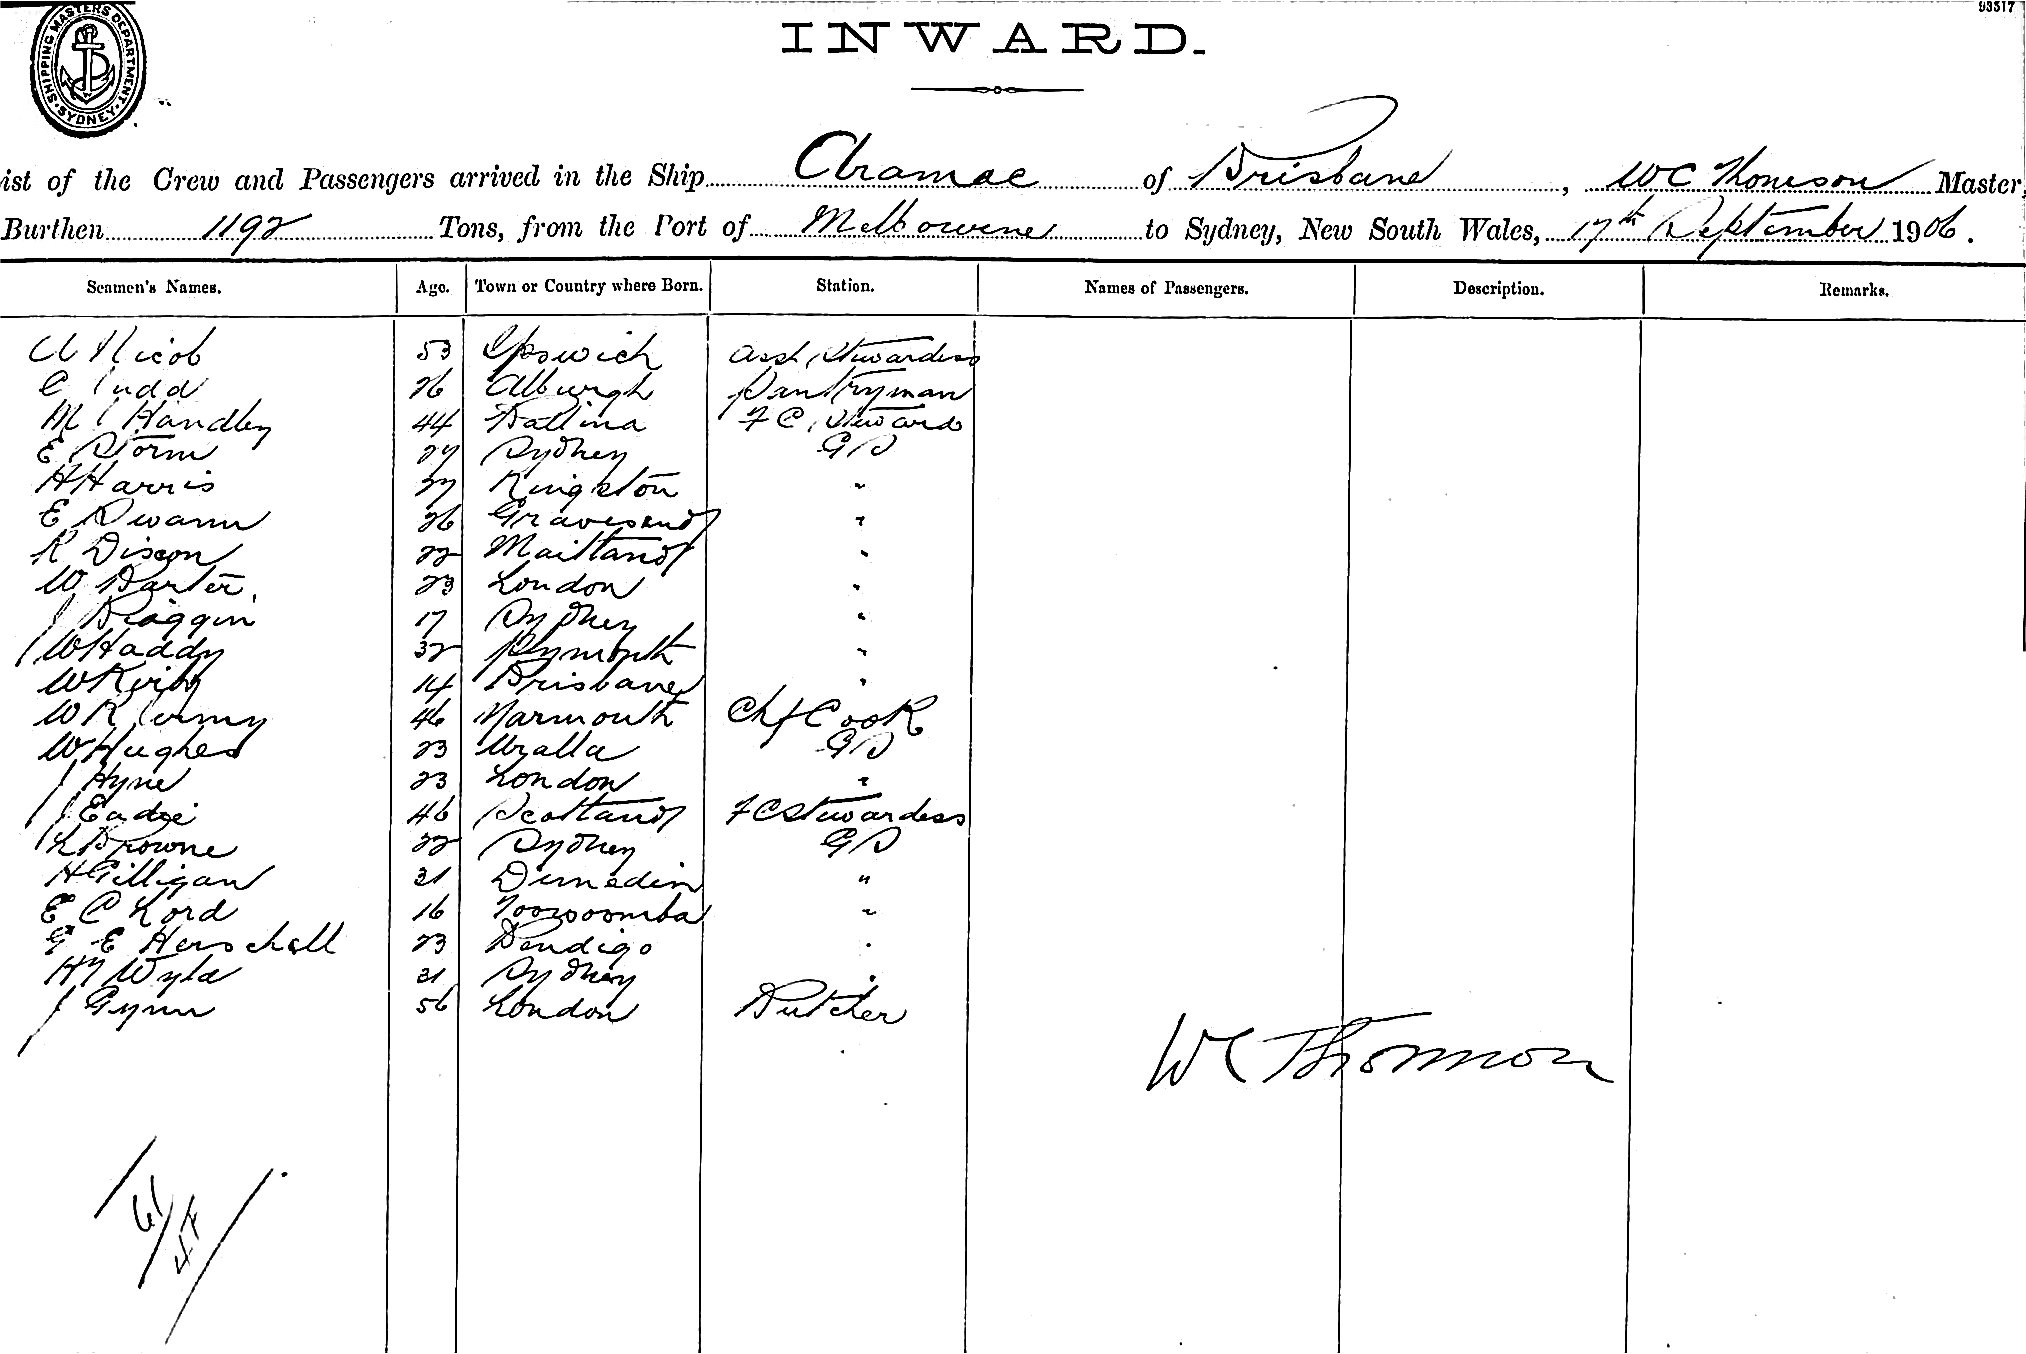 93517
SHIPPING MASTERS DEPARTMENT · SYDNEY ·
INWARD.
ist of the Crew and Passengers arrived in the Ship Aramac of Brisbane, WC Thomson Master,
Burthen 1192 Tons, from the Port of Melbourne to Sydney, New South Wales, 17th September 1906.
Seamen's Names. Age. Town or Country where Born. Station. Names of Passengers. Description. Remarks.
A Nicob 53 Ipswich Asst Stewardess
C Judd 26 Alburgh Pantryman
M C Handley 44 Ballina F C Steward
E Storm 27 Sydney G S
H Harris 37 Kingston "
E Swann 26 Gravesend "
R Dixon 22 Maitland "
W Barter 23 London "
J Braggin 17 Sydney "
W Haddy 32 Plymouth "
W Kirby 14 Brisbane "
W R 46 Yarmouth Chf Cook
W Hughes 23 Uralla G S
J Hyne 23 London "
J Eadie 46 Scotland F C Stewardess
L Browne 22 Sydney G S
H Gilligan 31 Dunedin "
E C Lord 16 Toowoomba "
G E Herschell 23 Bendigo "
H Wyld 31 Sydney "
J Gynn 56 London Butcher
WC Thomson
61